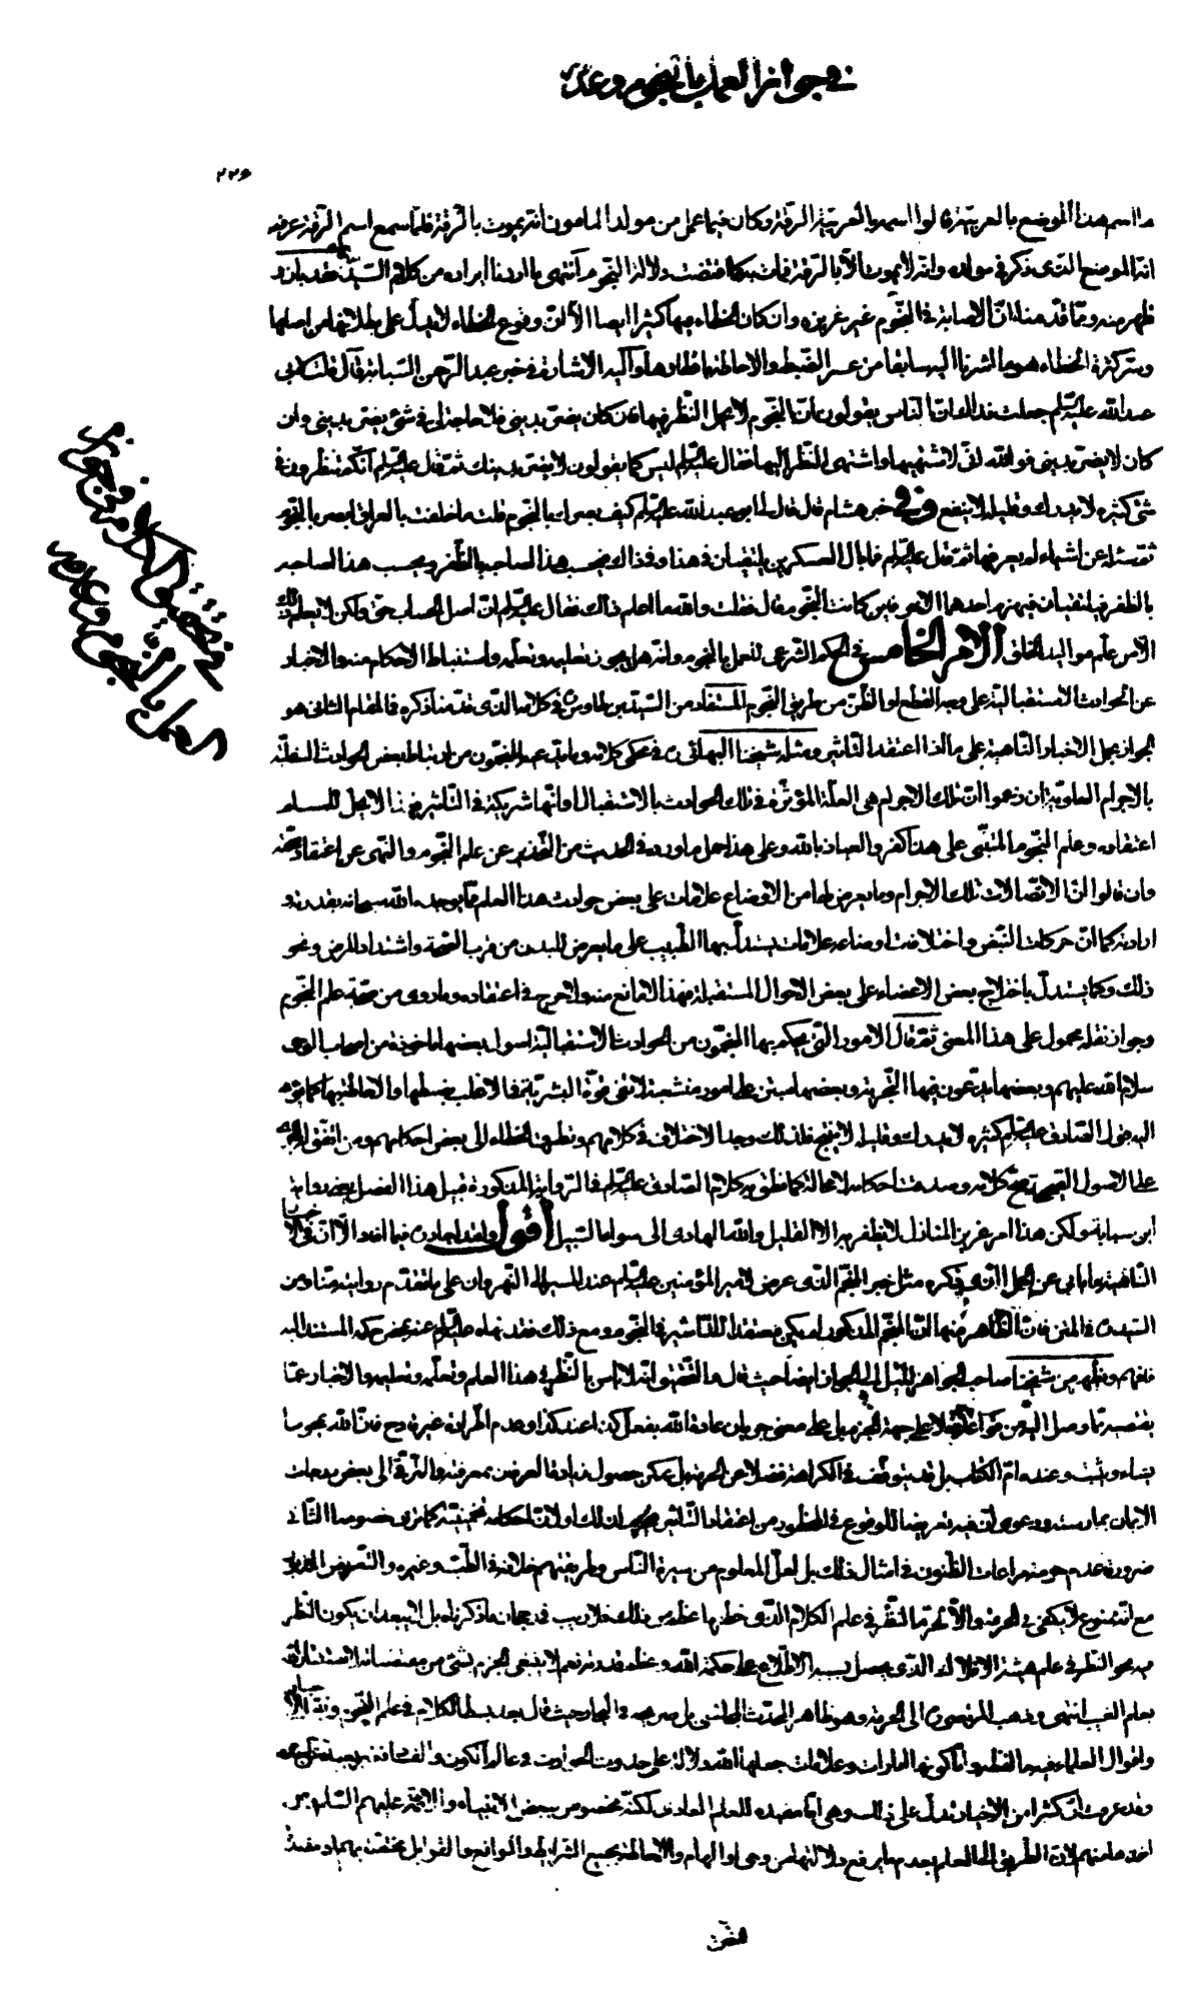 في جواز العمل بالنجوم وعدمه
٢٢٦
ما اسم هذا الموضع بالعربية قالوا اسمه بالعربية الرقة وكان فيما عمل من مولد المامون انه يموت بالرقة فلما سمع اسم الرقة عرف
انه الموضع الذي ذكر في مولده وانه لا يموت الا بالرقة فمات به كما اقتضت دلالة النجوم انتهى ما اردنا ايراده من كلام السيد
ظهر منه ومما قدمناه ان الاصابة في النجوم غير عزيزة وان كان الخطاء فيها كثيرا ايضا الا ان وقوع الخطاء لا يدل على بطلانها من اصلها
وسر كثرة الخطاء هو ما اشرنا اليه سابقا من عسر الضبط والاحاطة باقطارها واليه الاشارة في خبر عبد الرحمن السيابة قال قلت لابي
عبد الله عليه السلم جعلت فداك ان الناس يقولون ان النجوم لا يحل النظر فيها فان كان يضر بديني فلا حاجة لي في شئ يضر بديني وان
كان لا يضر بديني فوالله اني لاشتهيها واشتهى النظر اليها فقال عليه السلم ليس كما يقولون لا يضر بدينك ثم قال عليه السلم انكم تنظرون في
شئ كثيره لا يدرك وقليله لا ينفع وفي خبر هشام قال قال لي ابو عبد الله عليه السلم كيف بصرك بالنجوم قلت ما خلفت بالعراق ابصر بالنجوم
ثم سئله عن اشياء لم يعرفها ثم قال عليه السلم فما بال العسكرين يلتقيان في هذا وفي ذاك فيحسب هذا لصاحبه بالظفر ويحسب هذا لصاحبه
بالظفر فيلتقيان فيهزم احدهما الاخر فاين كانت النجوم قال فقلت والله ما اعلم ذلك فقال عليه السلم ان اصل الحساب حق ولكن لا يعلم ذلك
الا من علم مواليد الخلق الامر الخامس في الحكم الشرعي للعمل بالنجوم وانه هل يجوز تعليمه وتعلمه واستنباط الاحكام منه والاخبار
عن الحوادث الاستقبالية على وجه القطع او الظن من طريق النجوم المستفاد من السيد بن طاوس في كلامه الذي قدمنا ذكره في المقام الثاني هو
الجواز بحمل الاخبار الناهية على ما اذا اعتقد التاثير ومثله شيخنا البهائي في محكي كلامه ما يدعيه المنجمون من ارتباط بعض الحوادث السفلية
بالاجرام العلوية ان زعموا ان تلك الاجرام هي العلة المؤثرة في تلك الحوادث بالاستقلال او انها شريكة في التاثير فهذا لا يحل للمسلم
اعتقاده وعلم النجوم المبتني على هذا كفر والعياذ بالله وعلى هذا حمل ما ورد في الحديث من التحذير عن علم النجوم والنهى عن اعتقاد صحته
وان قالوا ان اتصالات تلك الاجرام وما يعرض لها من الاوضاع علامات على بعض حوادث هذا العالم مما يوجده الله سبحانه بقدرته و
ارادته كما ان حركات النبض واختلافات اوضاعه علامات يستدل بها الطبيب على ما يعرض للبدن من قرب الصحة واشتداد المرض ونحو
ذلك وكما يستدل باختلاج بعض الاعضاء على بعض الاحوال المستقبلة فهذا لا مانع منه ولا حرج في اعتقاده وما روى من صحة علم النجوم
وجواز نقله محمول على هذا المعنى ثم قال الامور التي يحكم بها المنجمون من الحوادث الاستقبالية اصول بعضها ماخوذة من اصحاب الوحى
سلام الله عليهم وبعضها يدعون فيها التجربة وبعضها مبتن على امور متشعبة لا تفي قوة البشرية في الاغلب بضبطها والاحاطة بها كما يؤمى
اليه قول الصادق عليه السلم كثيره لا يدرك وقليله لا ينتج فلذلك وجد الاختلاف في كلامهم وتطرق الخطاء الى بعض احكامهم ومن اتفق له الجرى
على الاصول الصحيحة صح كلامه وصدقت احكامه لا محالة كما نطق به كلام الصادق عليه السلم في الرواية المذكورة قبيل هذا الفصل يعني رواية
ابن سيابة ولكن هذا امر عزيز المنال لا يظفر به الا القليل والله الهادي الى سواء السبيل اقول ولقد اجاد فيما افاد الا ان في الاخبار
الناهية ما يابى عن الحمل الذي ذكره مثل خبر المنجم الذي عرض لامير المؤمنين عليه السلم عند المسير الى النهروان على ما تقدم روايته منا ومن
السيد في المتن فان الظاهر منها ان المنجم المذكور لم يكن معتقدا للتاثير في النجوم ومع ذلك فقد نهاه عليه السلم عنه بمحض حكمه المستند اليه
فافهم ويظهر من شيخنا صاحب الجواهر الميل الى الجواز ايضا حيث قال التحقيق انه لا باس بالنظر في هذا العلم وتعلمه وتعليمه والاخبار عما
يقتضيه مما وصل اليه من قواعده لا على جهة الجزم بل على معنى جريان عادة الله بفعل كذا عند كذا وعدم اطراد غيره قادح فان الله يمحو ما
يشاء ويثبت وعنده ام الكتاب بل قد يتوقف في الكراهة فضلا عن الحرمة بل يمكن حصول زيادة العرفان بمعرفته والترقي الى بعض درجات
الايمان بممارسته ودعوى ان فيه تعريضا للوقوع في المحظور من اعتقاد التاثير فيحرم لذلك او لان احكامه تخمينية كما ترى خصوصا الثاني
ضرورة عدم حرمة مراعات الظنون في امثال ذلك بل لعل المعلوم من سيرة الناس وطريقتهم خلافه في الطب وغيره والتعريض المذكور
مع انه ممنوع لا يكفي في الحرمة والا لحرم النظر في علم الكلام الذي خطره اعظم من ذلك فلا ريب في رجحان ما ذكرناه بل لا يبعد ان يكون النظر
فيه نحو النظر في علم هيئة الافلاك الذي يحصل بسببه الاطلاع على حكمة الله وعظم قدرته نعم لا ينبغي الجزم بشئ من مقتضياته لاستيثار الله
بعلم الغيب انتهى وذهب المرتضى الى الحرمة وهو ظاهر المحدث المجلسي بل صريحه في البحار حيث قال بعد بسط الكلام في علم النجوم ونقل الاخبار
واقوال العلماء فيه القطر واما كونها امارات وعلامات جعلها الله دلالة على حدوث الحوادث في عالم الكون والفساد فغير بعيد عن السداد
وقد عرفت ان كثيرا من الاخبار تدل على ذلك وهي اما مفيدة للعلم العادي لكنه مخصوص ببعض الانبياء والائمة عليهم السلام ومن
اخذها منهم لان الطريق الى العلم بعدم ما يرفع دلالتها من وحي او الهام والاحاطة بجميع الشرايط والموانع والقوابل مختصة بهم او مفيدة
للظن
في تحقيق الكلام في جواز
العمل بالنجوم وعدمه